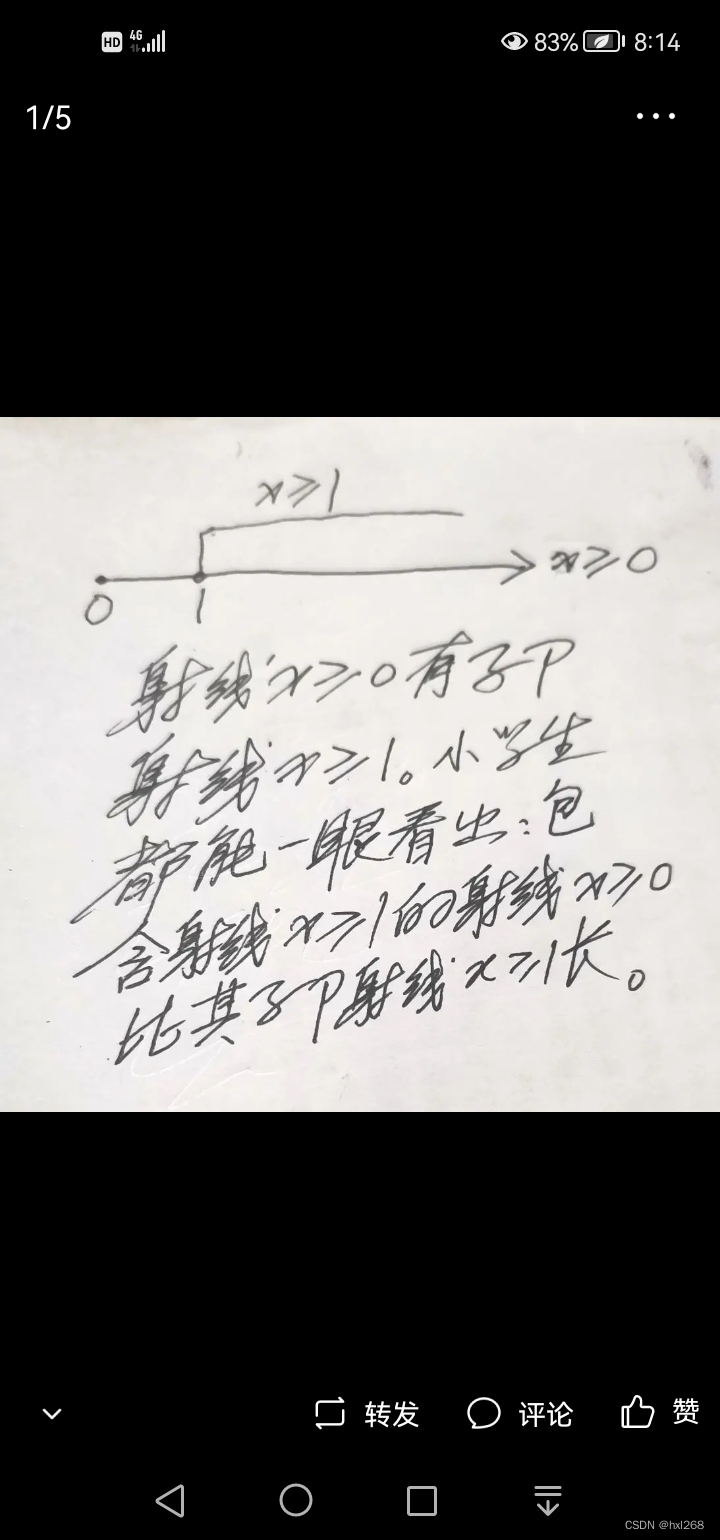 HD 4G 83% 8:14
1/5
x≥1
x≥0
0 1
射线x≥0有子P
射线x≥1。小学生
都能一眼看出：包
含射线x≥1的射线x≥0
比其子P射线x≥1长。
转发 评论 赞
CSDN @hxl268